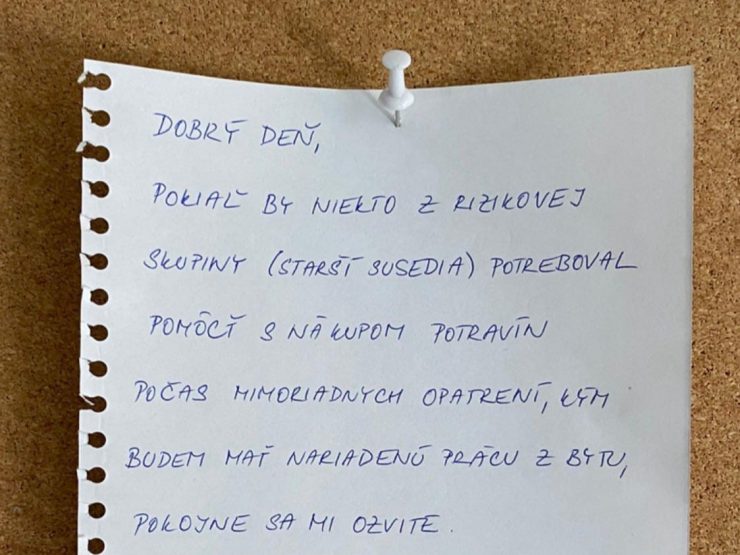 DOBRÝ DEŇ,
POKIAĽ BY NIEKTO Z RIZIKOVEJ
SKUPINY (STARŠÍ SUSEDIA) POTREBOVAL
POMÔCŤ S NÁKUPOM POTRAVÍN
POČAS MIMORIADNYCH OPATRENÍ, KÝM
BUDEM MAŤ NARIADENÚ PRÁCU Z BYTU,
POKOJNE SA MI OZVITE.